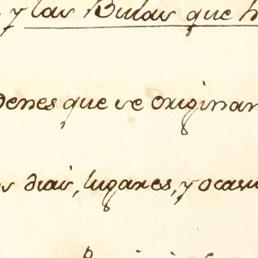 y las Bulas que h
denes que se originan
dias, lugares, y ocasi